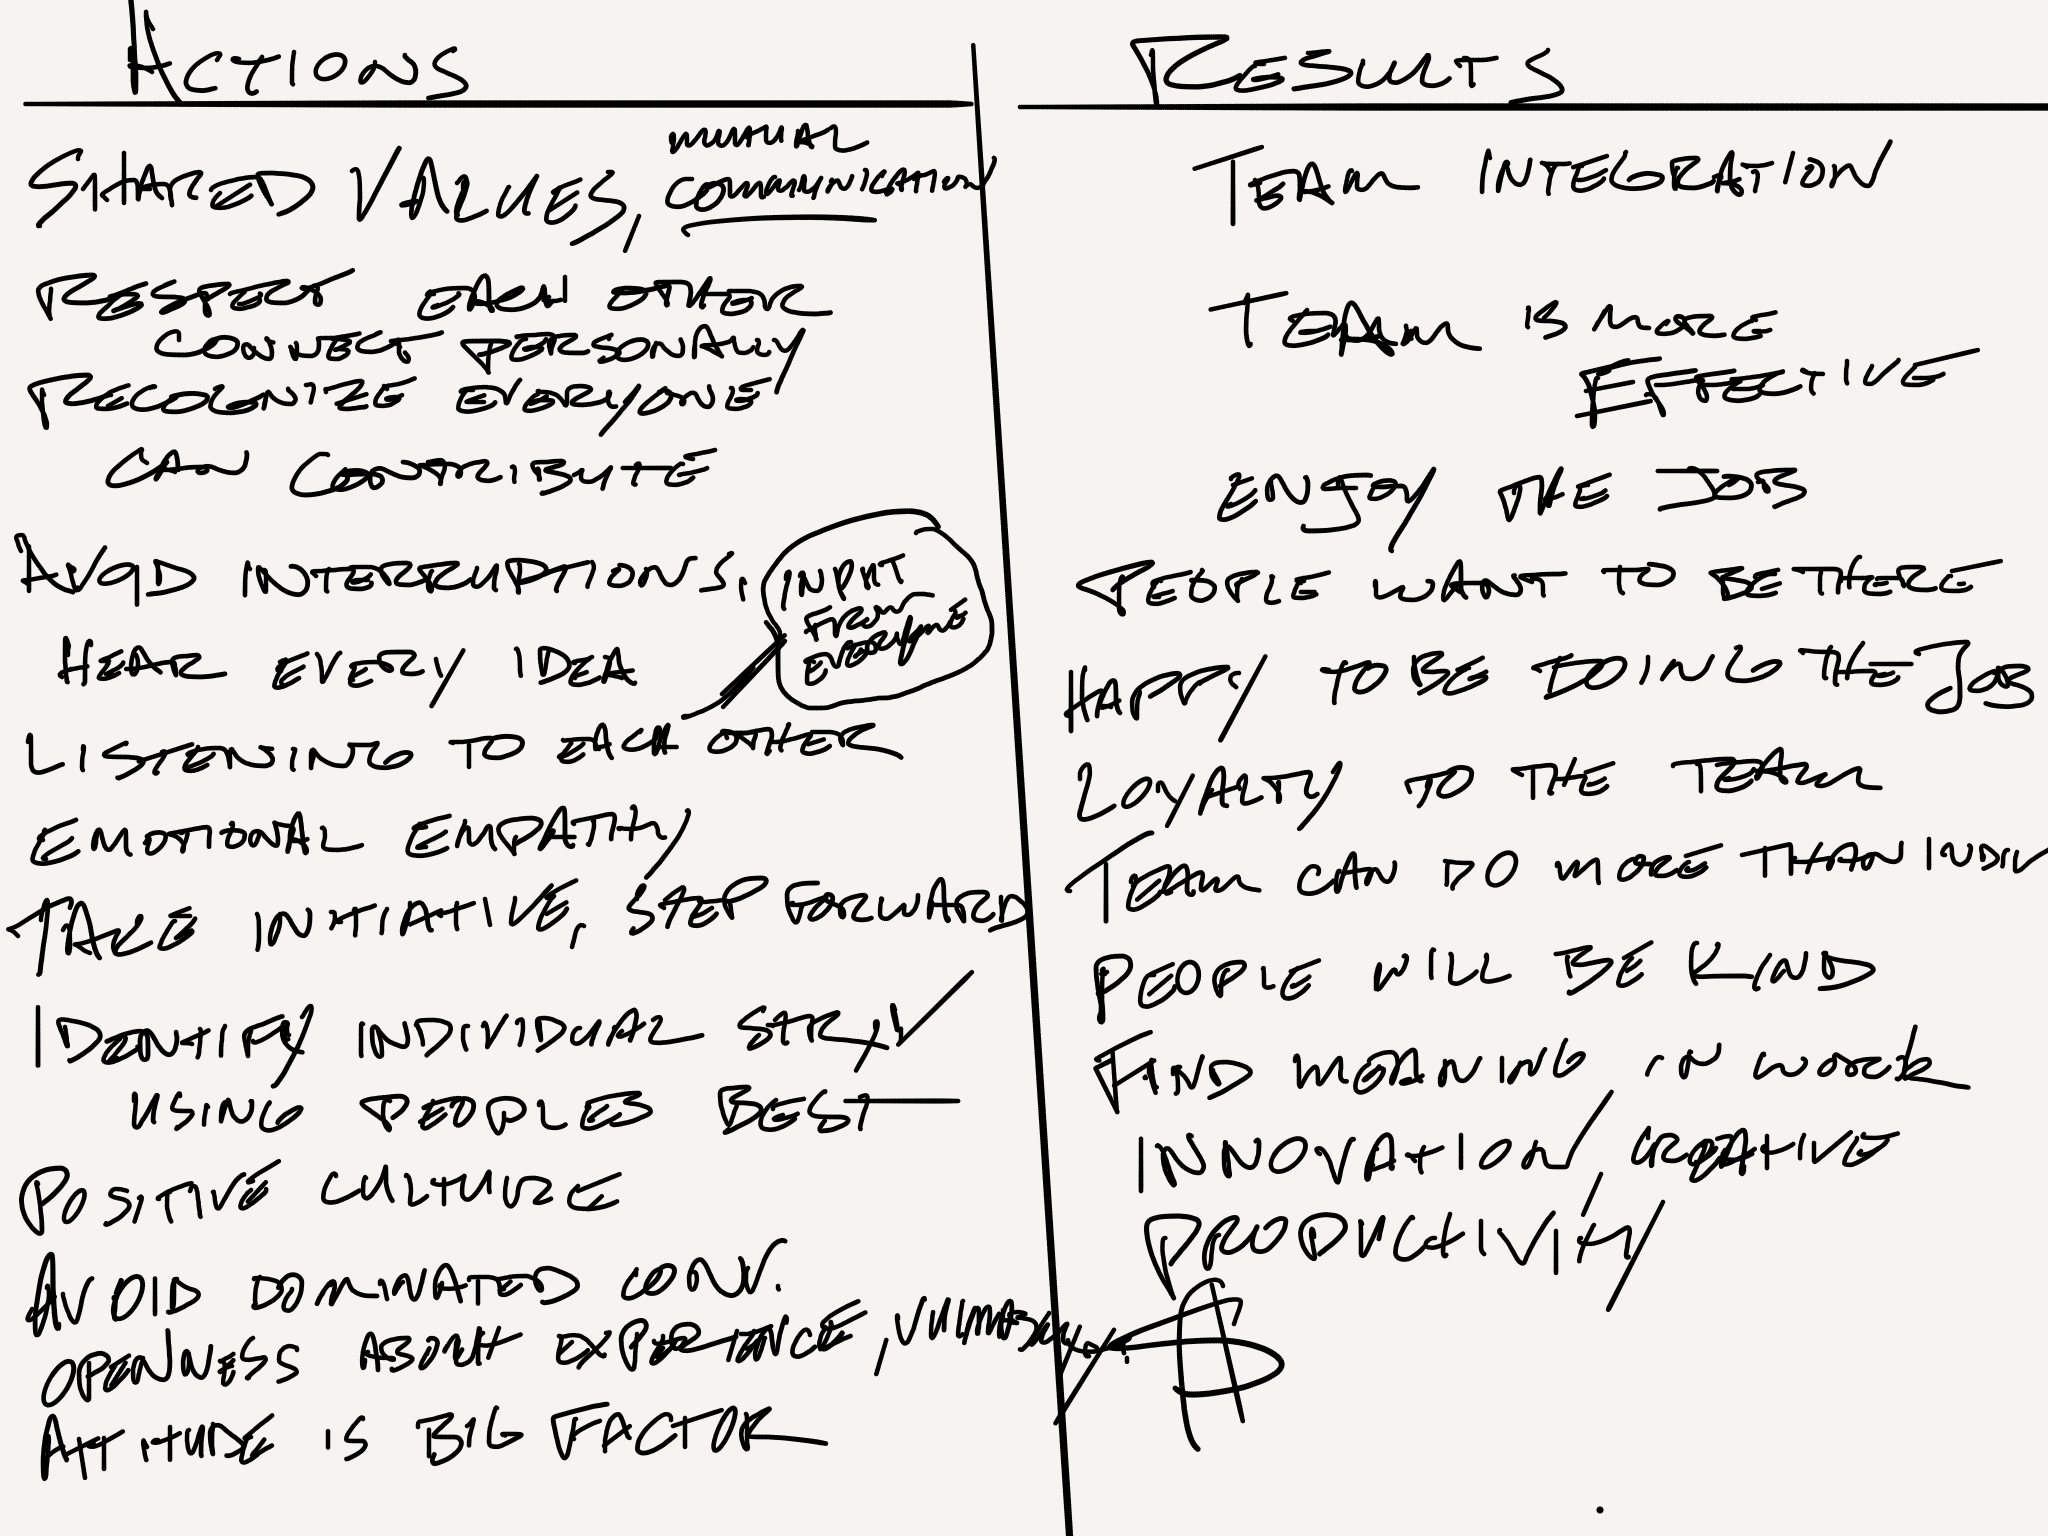 ACTIONS
SHARED VALUES, MUTUAL
COMMUNICATION
RESPECT EACH OTHER
CONNECT PERSONALLY
RECOGNIZE EVERYONE
CAN CONTRIBUTE
AVOID INTERRUPTIONS,
INPUT
FROM
EVERYONE
HEAR EVERY IDEA
LISTENING TO EACH OTHER
EMOTIONAL EMPATHY
TAKE INITIATIVE, STEP FORWARD
IDENTIFY INDIVIDUAL STR,
USING PEOPLES BEST
POSITIVE CULTURE
AVOID DOMINATED CONV.
OPENNESS ABOUT EXPERIENCE,
ATTITUDE IS BIG FACTOR
RESULTS
TEAM INTEGRATION
TEAM IS MORE
EFFECTIVE
ENJOY THE JOB
PEOPLE WANT TO BE THERE
HAPPY TO BE DOING THE JOB
LOYALTY TO THE TEAM
TEAM CAN DO MORE THAN INDIV
PEOPLE WILL BE KIND
FIND MEANING IN WORK
INNOVATION, CREATIVE
PRODUCTIVITY
$